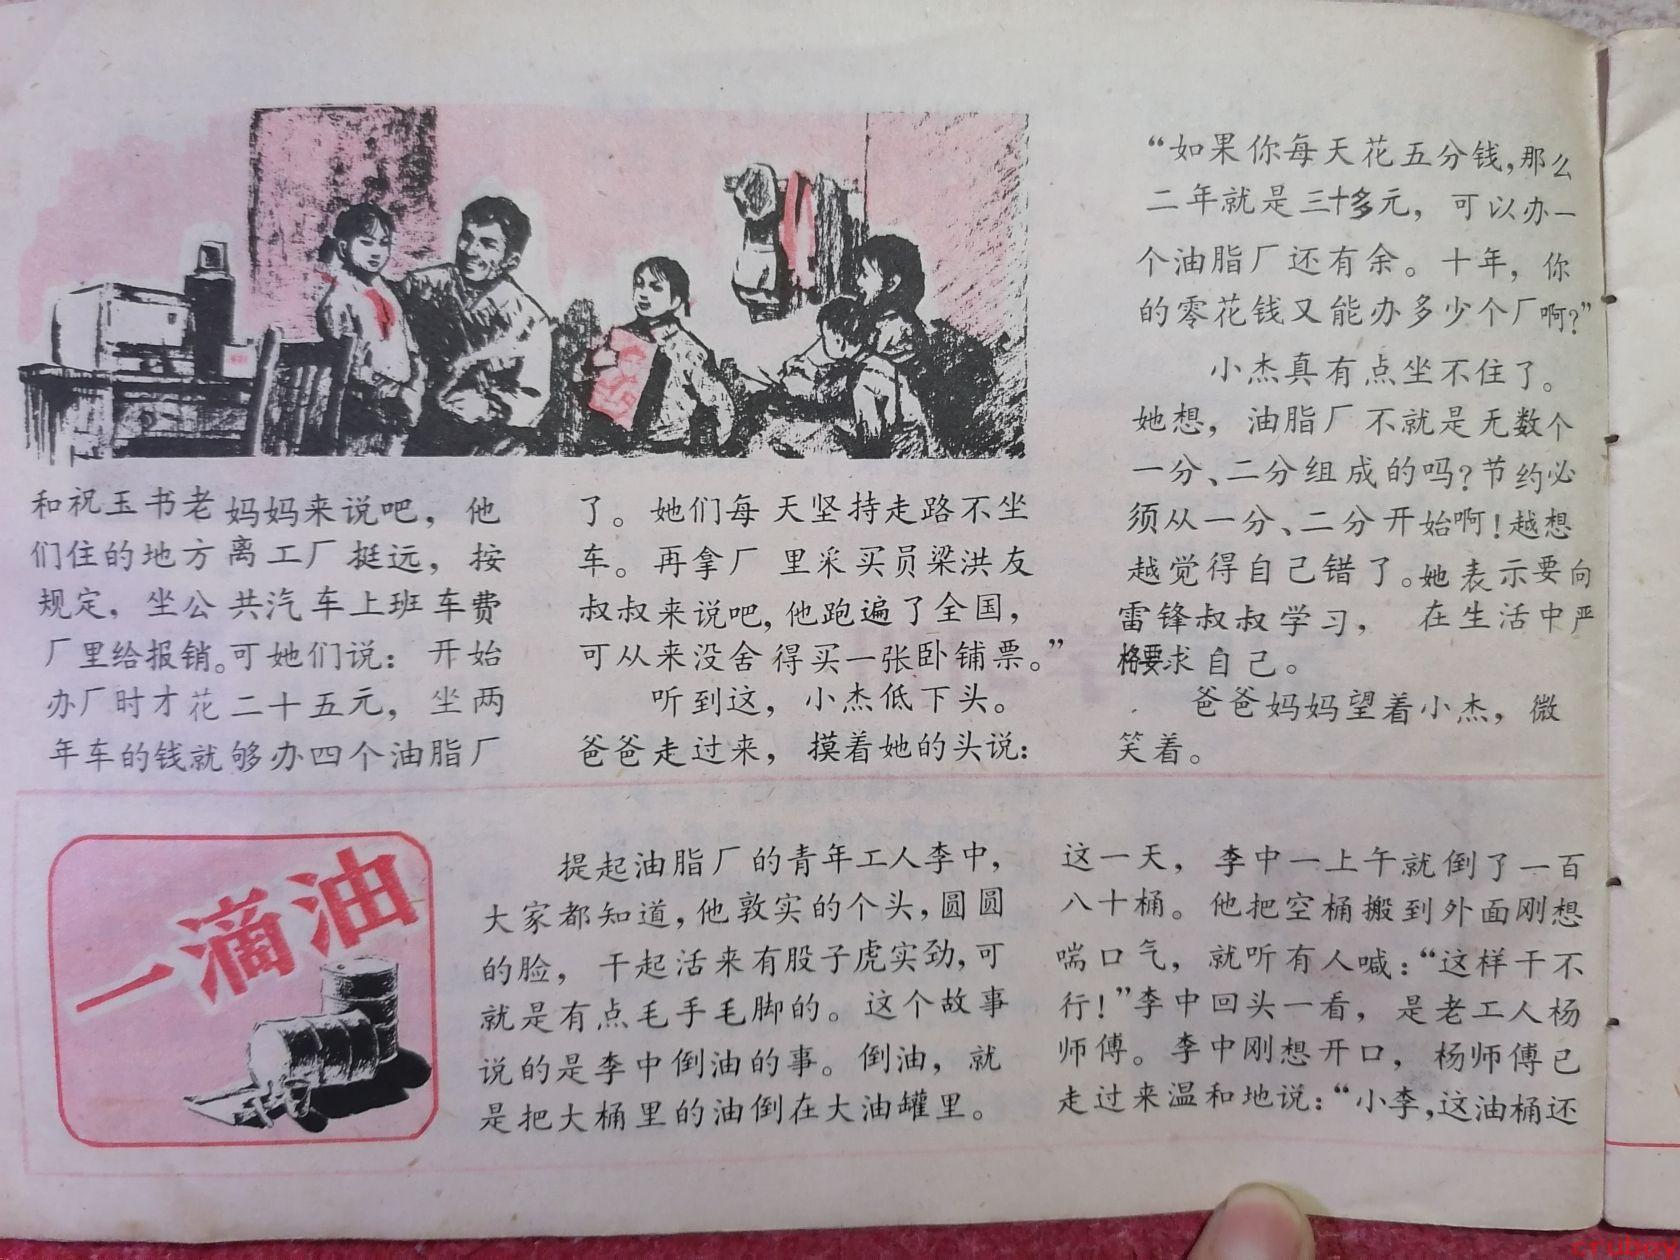 和祝玉书老妈妈来说吧，他
们住的地方离工厂挺远，按
规定，坐公共汽车上班车费
厂里给报销。可她们说：开始
办厂时才花二十五元，坐两
年车的钱就够办四个油脂厂
了。她们每天坚持走路不坐
车。再拿厂里采买员梁洪友
叔叔来说吧，他跑遍了全国，
可从来没舍得买一张卧铺票。”
听到这，小杰低下头。
爸爸走过来，摸着她的头说：
“如果你每天花五分钱，那么
二年就是三十多元，可以办一
个油脂厂还有余。十年，你
的零花钱又能办多少个厂啊？”
小杰真有点坐不住了。
她想，油脂厂不就是无数个
一分、二分组成的吗？节约必
须从一分、二分开始啊！越想
越觉得自己错了。她表示要向
雷锋叔叔学习，在生活中严
格要求自己。
爸爸妈妈望着小杰，微
笑着。
一滴油
提起油脂厂的青年工人李中，
大家都知道，他敦实的个头，圆圆
的脸，干起活来有股子虎实劲，可
就是有点毛手毛脚的。这个故事
说的是李中倒油的事。倒油，就
是把大桶里的油倒在大油罐里。
这一天，李中一上午就倒了一百
八十桶。他把空桶搬到外面刚想
喘口气，就听有人喊：“这样干不
行！”李中回头一看，是老工人杨
师傅。李中刚想开口，杨师傅已
走过来温和地说：“小李，这油桶还